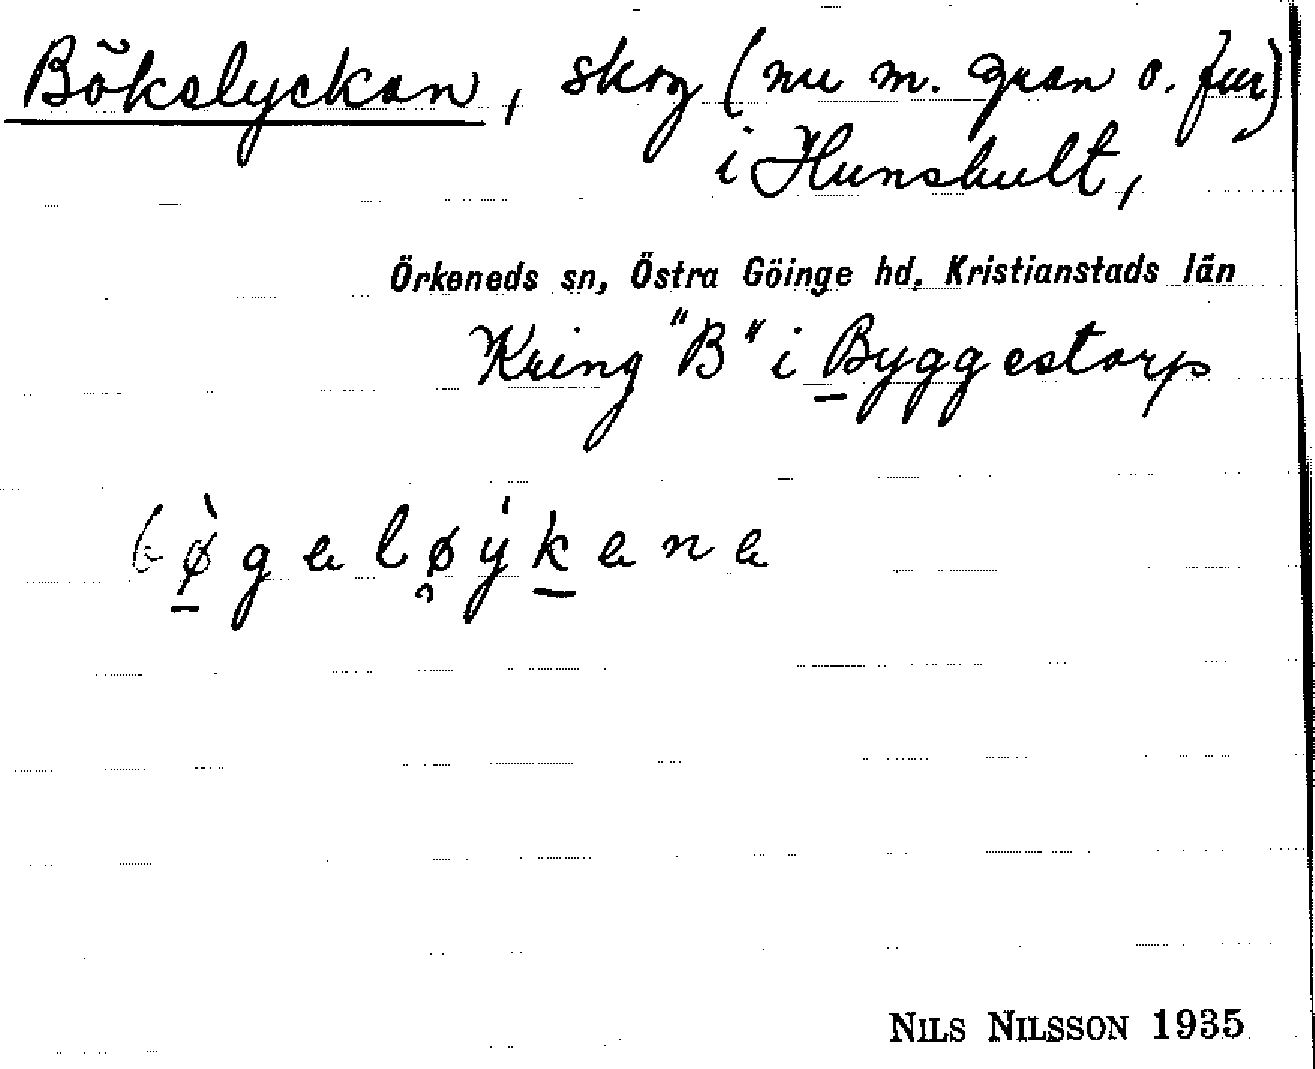 Bökslyckan, skog (nu m. gran o. fur)
i Hunshult,
Örkeneds sn, Östra Göinge hd, Kristianstads län
Kring "B" i Byggestorp
bø̀geløýkene
NILS NILSSON 1935